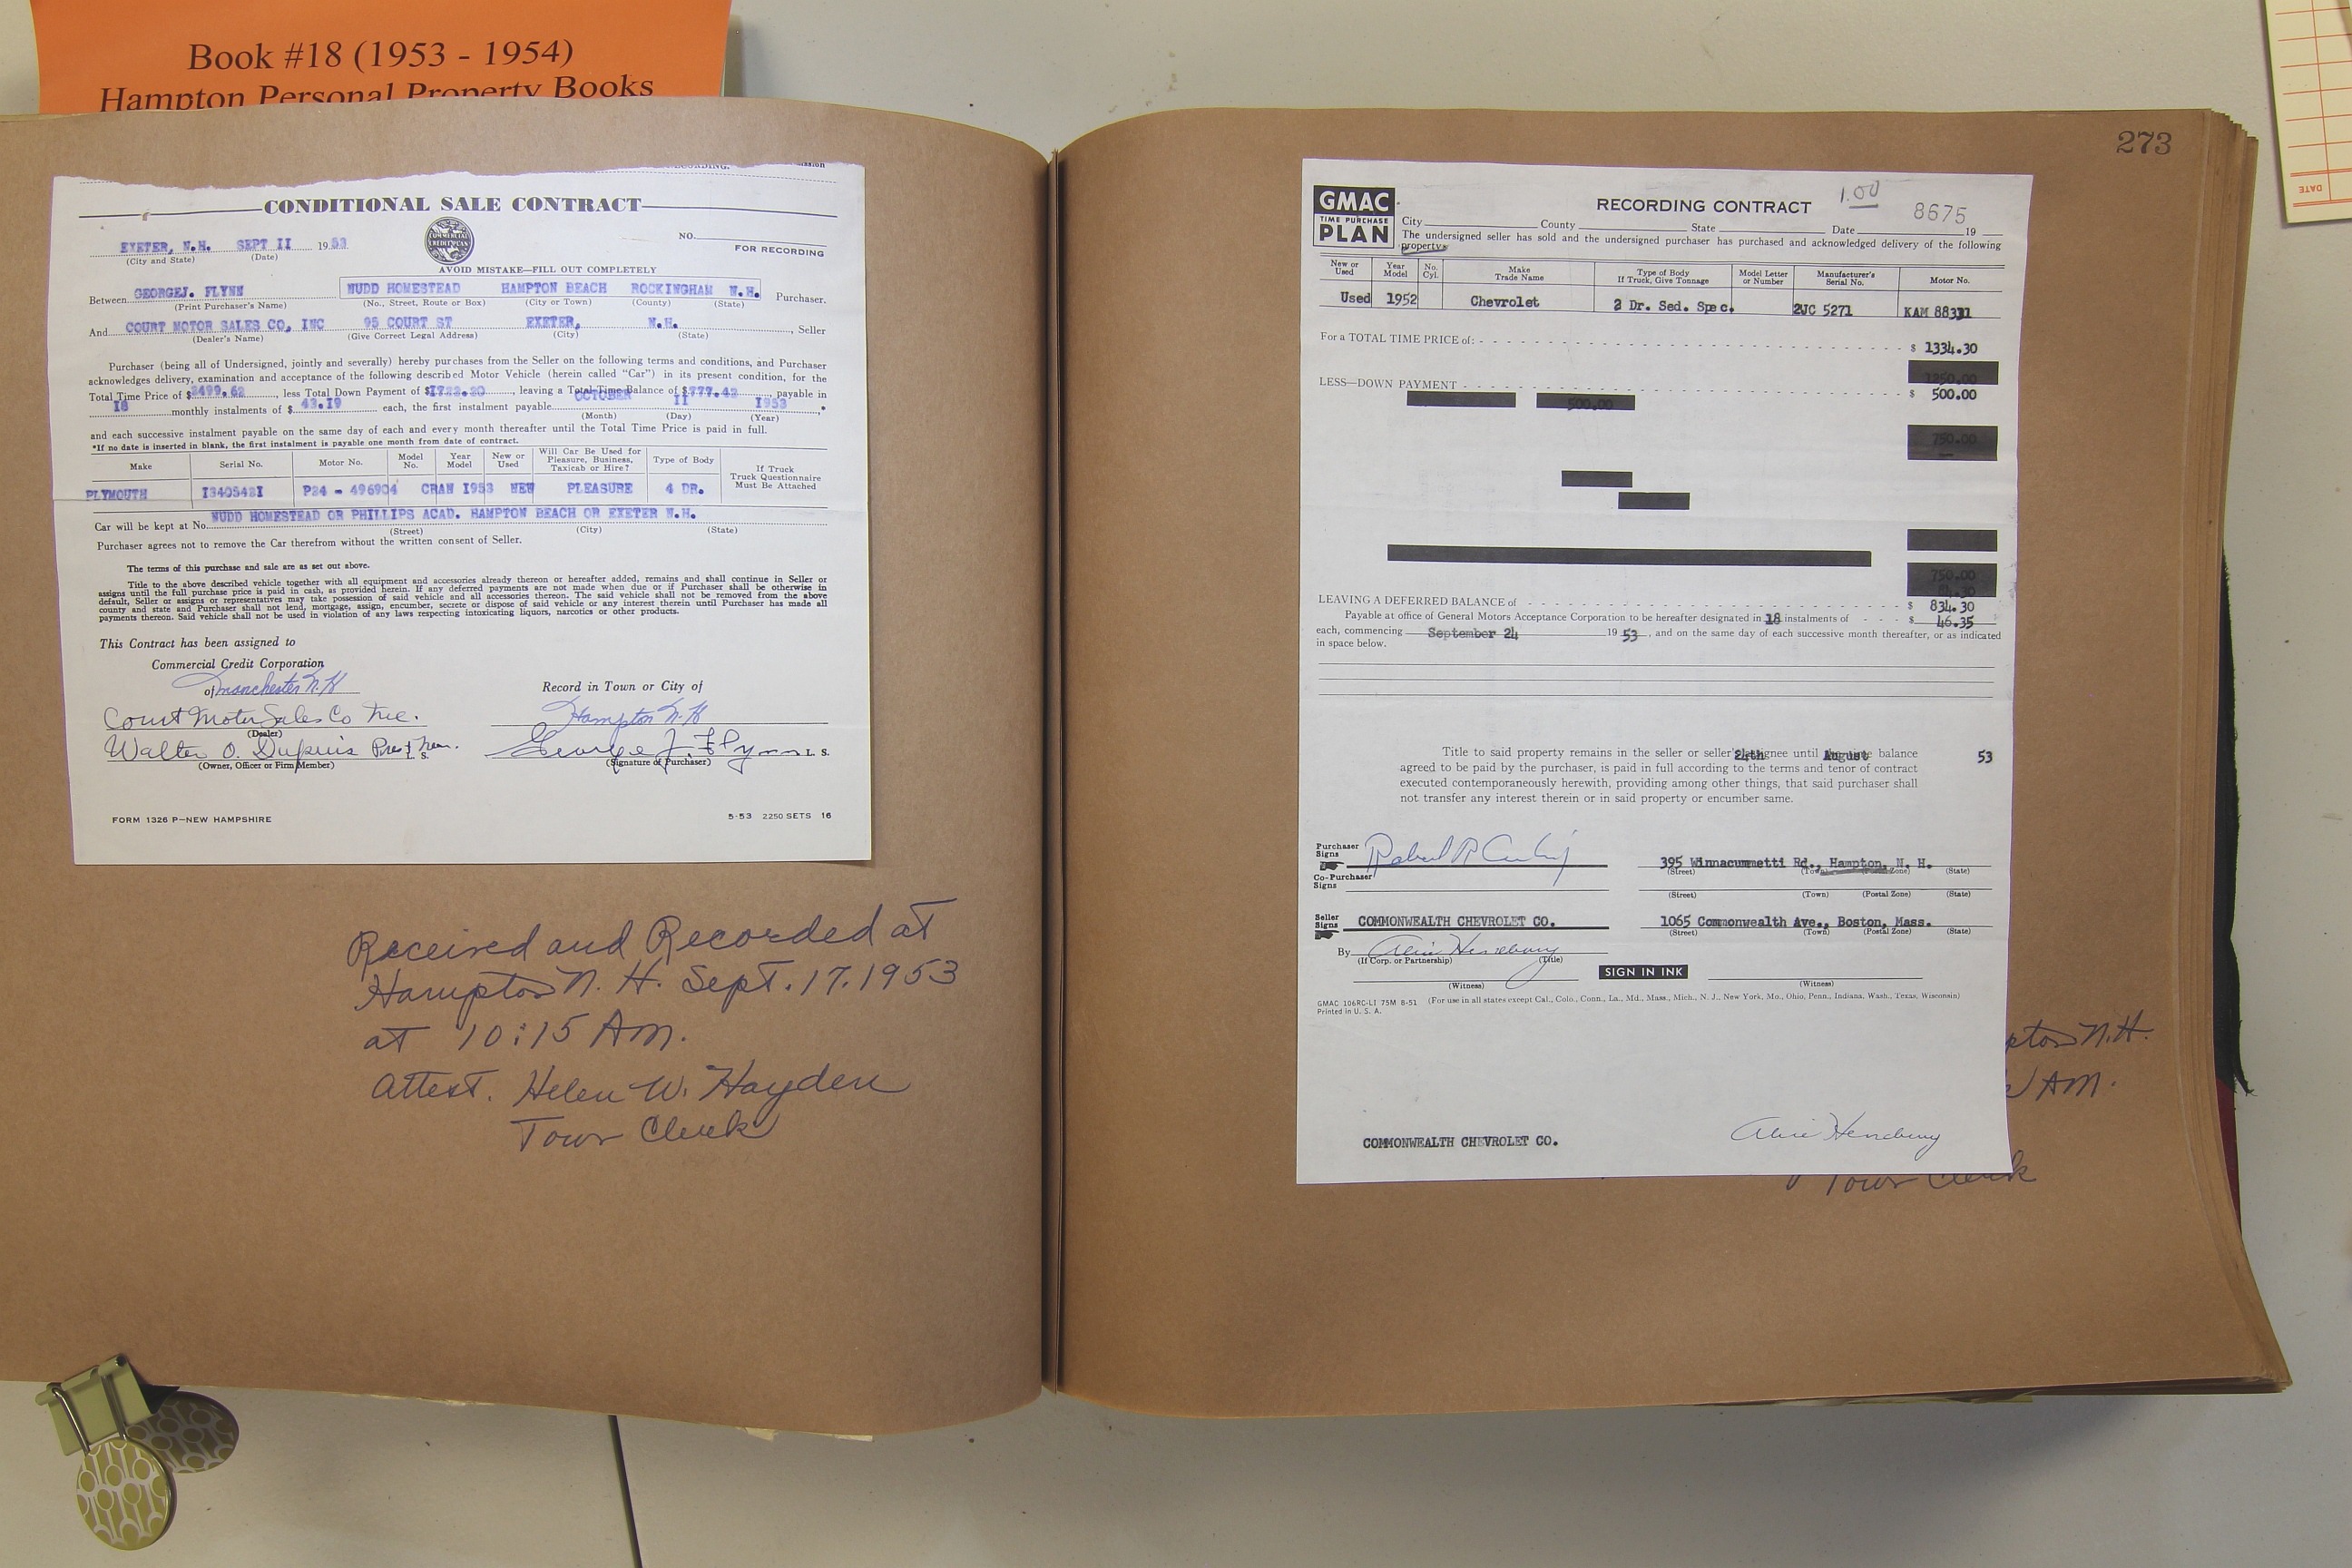 Book #18 (1953 - 1954)
Hampton Personal Property Books
CONDITIONAL SALE CONTRACT
EXETER, N.H. SEPT II 1953
(City and State) (Date)
COMMERCIAL CREDIT PLAN
NO.
FOR RECORDING
AVOID MISTAKE—FILL OUT COMPLETELY
Between GEORGEJ. FLYNN NUDD HOMESTEAD HAMPTON BEACH ROCKINGHAM N.H. Purchaser.
(Print Purchaser's Name) (No., Street, Route or Box) (City or Town) (County) (State)
And COURT MOTOR SALES CO, INC 95 COURT ST EXETER, N.H. , Seller
(Dealer's Name) (Give Correct Legal Address) (City) (State)
Purchaser (being all of Undersigned, jointly and severally) hereby purchases from the Seller on the following terms and conditions, and Purchaser
acknowledges delivery, examination and acceptance of the following described Motor Vehicle (herein called "Car") in its present condition, for the
Total Time Price of $2499.62, less Total Down Payment of $1722.20, leaving a Total Time Balance of $777.42 payable in
18 monthly instalments of $ 43.19 each, the first instalment payable OCTOBER II I953 .*
(Month) (Day) (Year)
and each successive instalment payable on the same day of each and every month thereafter until the Total Time Price is paid in full.
*If no date is inserted in blank, the first instalment is payable one month from date of contract.
Make Serial No. Motor No. Model No. Year Model New or Used Will Car Be Used for Pleasure, Business, Taxicab or Hire? Type of Body If Truck Truck Questionnaire Must Be Attached
PLYMOUTH I340543I P24 - 496904 CRAN I953 NEW PLEASURE 4 DR.
Car will be kept at No. NUDD HOMESTEAD OR PHILLIPS ACAD. HAMPTON BEACH OR EXETER N.H.
(Street) (City) (State)
Purchaser agrees not to remove the Car therefrom without the written consent of Seller.
The terms of this purchase and sale are as set out above.
Title to the above described vehicle together with all equipment and accessories already thereon or hereafter added, remains and shall continue in Seller or
assigns until the full purchase price is paid in cash, as provided herein. If any deferred payments are not made when due or if Purchaser shall be otherwise in
default, Seller or assigns or representatives may take possession of said vehicle and all accessories thereon. The said vehicle shall not be removed from the above
county and state and Purchaser shall not lend, mortgage, assign, encumber, secrete or dispose of said vehicle or any interest therein until Purchaser has made all
payments thereon. Said vehicle shall not be used in violation of any laws respecting intoxicating liquors, narcotics or other products.
This Contract has been assigned to
Commercial Credit Corporation
of Manchester N.H
Record in Town or City of
Court Motor Sales Co Inc. Hampton N.H
(Dealer)
Walter O. Dupuis Pres & Treas. L. S. George J. Flynn L. S.
(Owner, Officer or Firm Member) (Signature of Purchaser)
FORM 1326 P—NEW HAMPSHIRE 5-53 2250 SETS 16
Received and Recorded at
Hampton N. H. Sept. 17. 1953
at 10:15 AM.
Attest. Helen W. Hayden
Town Clerk
273
GMAC
TIME PURCHASE
PLAN
RECORDING CONTRACT 1.00 8675
City County State Date 19
The undersigned seller has sold and the undersigned purchaser has purchased and acknowledged delivery of the following
property:
New or Used Year Model No. Cyl. Make Trade Name Type of Body If Truck, Give Tonnage Model Letter or Number Manufacturer's Serial No. Motor No.
Used 1952 Chevrolet 2 Dr. Sed. Spec. 2UC 5271 KAM 88331
For a TOTAL TIME PRICE of: $ 1334.30
1250.00
LESS—DOWN PAYMENT $ 500.00
500.00
750.00
750.00
84.30
LEAVING A DEFERRED BALANCE of $ 834.30
Payable at office of General Motors Acceptance Corporation to be hereafter designated in 18 instalments of $ 46.35
each, commencing September 24 19 53, and on the same day of each successive month thereafter, or as indicated
in space below.
Title to said property remains in the seller or seller's assignee until the time balance 24th August 53
agreed to be paid by the purchaser, is paid in full according to the terms and tenor of contract
executed contemporaneously herewith, providing among other things, that said purchaser shall
not transfer any interest therein or in said property or encumber same.
Purchaser Signs Robert R 395 Winnacummetti Rd., Hampton, N. H.
(Street) (Town) (Postal Zone) (State)
Co-Purchaser Signs
(Street) (Town) (Postal Zone) (State)
Seller Signs COMMONWEALTH CHEVROLET CO. 1065 Commonwealth Ave., Boston, Mass.
(Street) (Town) (Postal Zone) (State)
By
(If Corp. or Partnership) (Title)
SIGN IN INK
(Witness) (Witness)
GMAC 106RC-LI 75M 8-51 (For use in all states except Cal., Colo., Conn., La., Md., Mass., Mich., N. J., New York, Mo., Ohio, Penn., Indiana, Wash., Texas, Wisconsin)
Printed in U. S. A.
pton N.H.
AM.
COMMONWEALTH CHEVROLET CO.
Town Clerk
DATE